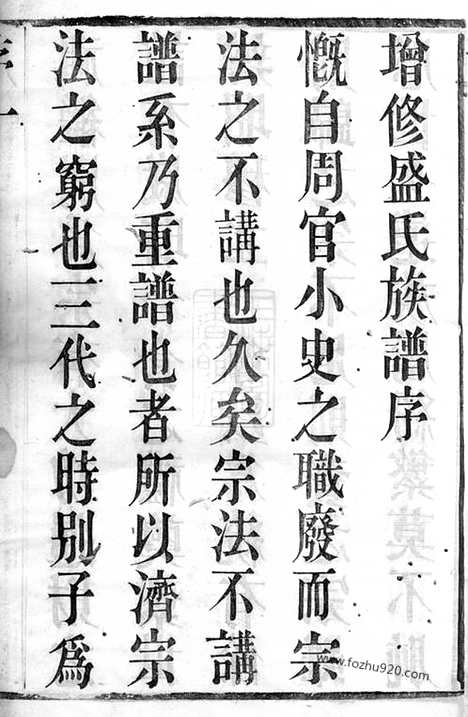 增修盛氏族譜序
慨自周官小史之職廢而宗
法之不講也久矣宗法不講
譜系乃重譜也者所以濟宗
法之窮也三代之時别子爲
www.fozhu920.com